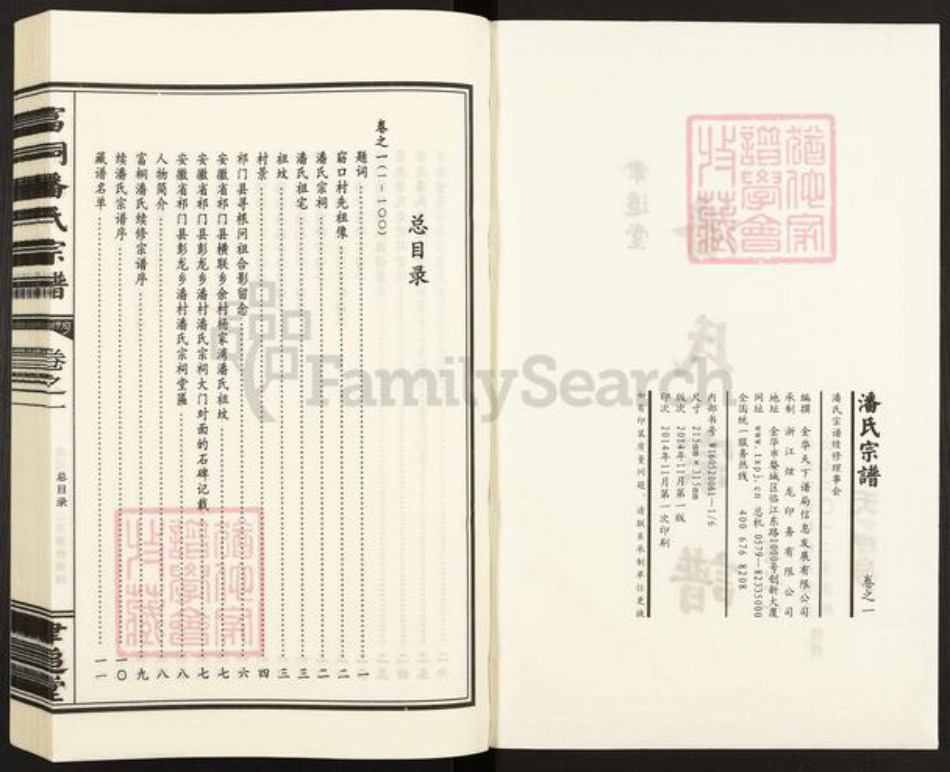 潘氏宗譜
卷之一
潘氏宗譜续修理事会
编撰 金华天下谱局信息发展有限公司
承制 浙江炫龙印务有限公司
地址 金华市婺城区临江东路1000号创新大厦
网址 www.1spj.cn 总机 0579-82335000
全国统一服务热线 400 676 8208
内部书号 W160520061-1/6
尺寸 215mm×315mm
版次 2014年11月第一版
印次 2014年11月第一次印刷
如有印装质量问题，请联系承制单位更换
总目录
卷之一(一-一〇〇)
题词 一
窈口村先祖像 二
潘氏宗祠 二
潘氏祖宅 三
祖坟 三
村景 四
祁门县寻根问祖合影留念 六
安徽省祁门县横联乡余村杨家湾潘氏祖坟 七
安徽省祁门县彭龙乡潘村潘氏宗祠大门对面的石碑记载 七
安徽省祁门县彭龙乡潘村潘氏宗祠堂匾 八
人物简介 八
富桐潘氏续修宗谱序 九
续潘氏宗谱序 一〇
藏谱名单 一一
富桐潘氏宗谱
卷之一
总目录
FamilySearch